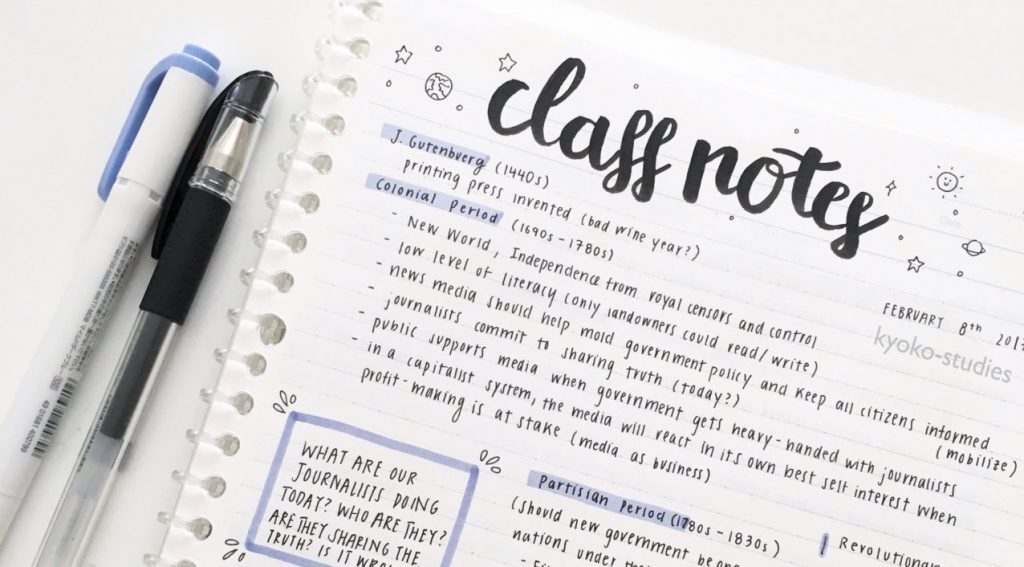 class notes
FEBRUARY 8th 2017
kyoko-studies
J. Gutenburg (1440s)
printing press invented (bad wine year?)
Colonial Period (1690s - 1780s)
- New World, Independence from royal censors and control
- low level of literacy (only landowners could read/write)
- news media should help mold government policy and keep all citizens informed
(mobilize)
- journalists commit to sharing truth (today?)
- public supports media when government gets heavy-handed with journalists
- in a capitalist system, the media will react in its own best self interest when
profit-making is at stake (media as business)
WHAT ARE OUR
JOURNALISTS DOING
TODAY? WHO ARE THEY?
ARE THEY SHARING THE
TRUTH? IS IT
Partisian Period (1780s - 1830s)
(should new government be one
nations under
Revolutionary